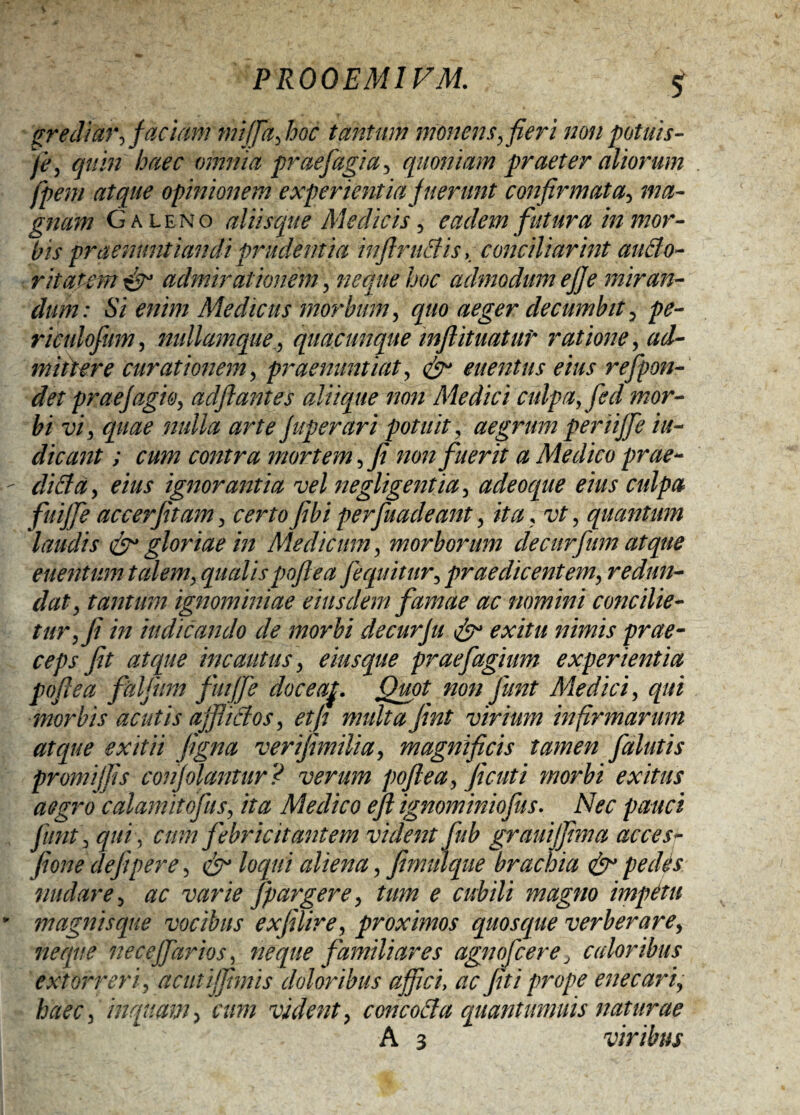 PROOEMIVM. 5
grediar, faciam missa, hoc tantum monens, fieri non potuis-
se, quin haec omnia praesagia, quoniam praeter aliorum
spem atque opinionem experientia fuerunt confirmata, ma-
gnam GALENO aliisque Medicis, eadem futura in mor-
bis praenuntiandi prudentia instructis, conciliarint aucto-
ritatem & admirationem, neque hoc admodum esse miran-
dum: Si enim Medicus morbum, quo aeger decumbit, pe-
riculosum, nullamque, quacunque instituatur ratione, ad-
mittere curationem, praenuntiat, & euentus eius respon-
det praesagio, adstantes aliique non Medici culpa, sed mor-
bi vi, quae nulla arte superari potuit, aegrum periisse iu-
dicant; cum contra mortem, si non fuerit a Medico prae-
dicta, eius ignorantia vel negligentia, adeoque eius culpa
fuisse accersitam, certo sibi persuadeant, ita, vt, quantum
laudis & gloriae in Medicum, morborum decursum atque
euentum talem, qualis postea sequitur, praedicentem, redun-
dat, tantum ignominiae eiusdem famae ac nomini concilie-
tur, si in iudicando de morbi decursu & exitu nimis prae-
ceps sit atque incautus, eiusque praesagium experientia
postea falsum fuisse doceat. Quot non sunt Medici, qui
morbis acutis afflictos, etsi multa sint virium infirmarum
atque exitii signa verisimilia, magnificis tamen salutis
promissis consolantur? verum postea, sicuti morbi exitus
aegro calamitosus, ita Medico est ignominiosus. Nec pauci
sunt, qui, cum febricitantem vident sub grauissima acces-
sione desipere, & loqui aliena, simulque brachia & pedes
nudare, ac varie spargere, tum e cubili magno impetu
magnisque vocibus exsilire, proximos quosque verberare,
neque necessarios, neque familiares agnoscere, caloribus
extorreri, acutissimis doloribus affici, ac siti prope enecari,
haec, inquam, cum vident, concocta quantumuis naturae
A 3 viribus